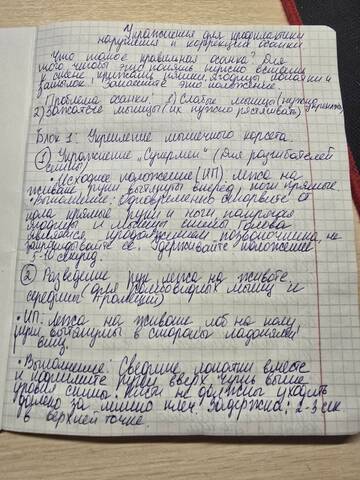 Упражнения для профилактики
нарушения и коррекции осанки
Что такое правильная осанка? Для
того чтобы это понять нужно встать
к стене прижать пятки, ягодицы лопатки и
затылок. Запомните это положение.
• Проблема осанки: 1) Слабые мышцы (нужно укреплять)
2) Зажатые мышцы (их нужно растягивать)
Блок 1: Укрепление мышечного корсета
① Упражнение „Супермен" (Для разгибателей
спины)
• Исходное положение (ИП) лежа на
животе, руки вытянуты вперед, ноги прямые.
• Выполнение: Одновременно оторвите от
пола прямые руки и ноги, напрягая
ягодицы и мышцы спины. Голова
является продолжением позвоночника, не
запрокидывайте ее. Удерживайте положение
5-10 секунд.
② Разведение рук лежа на животе
(для ромбовидных мышц и
средней трапеции)
• ИП: лежа на животе лоб на полу
руки вытянуты в стороны ладонями
вниз.
• Выполнение: Сведите лопатки вместе
и поднимите руки вверх чуть выше
уровня спины. Кисти не должны уходить
далеко за линию плеч. Задержка: 2-3 сек
в верхней точке.